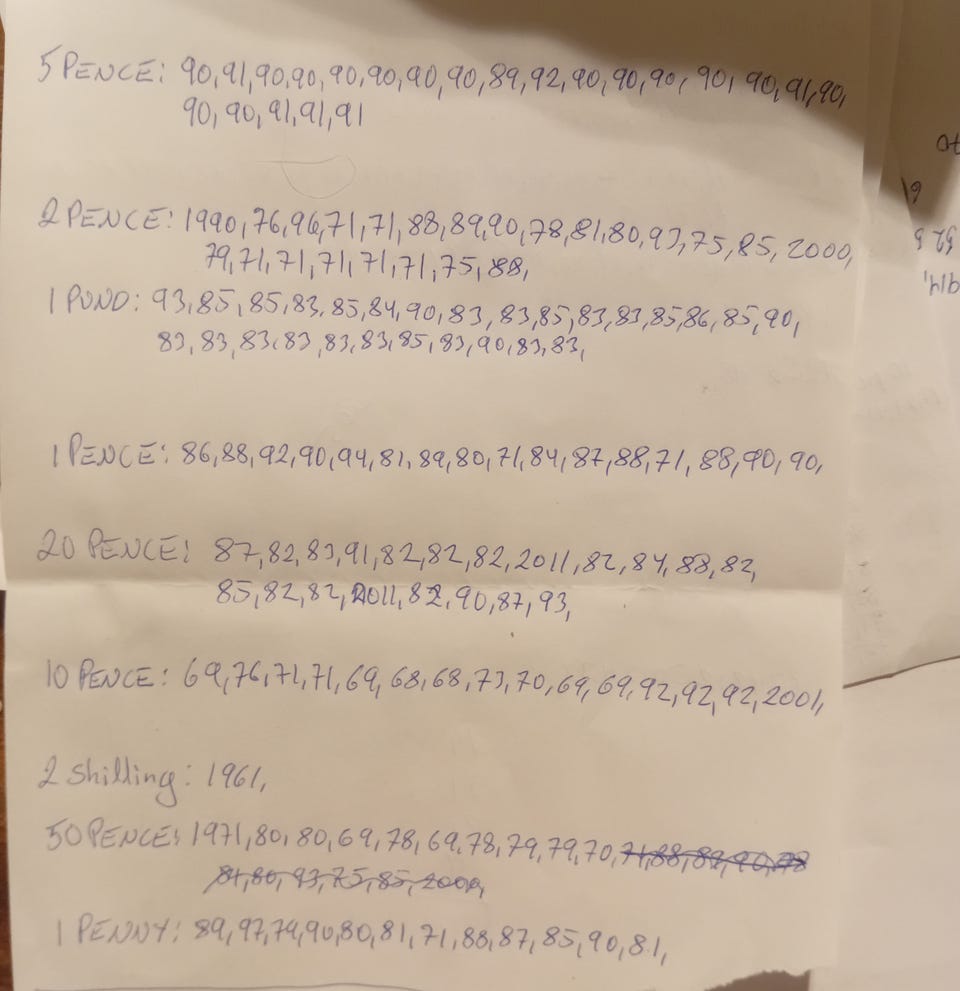 5 PENCE: 90,91,90,90,90,90,90,90,89,92,90,90,90,90,90,91,90,
90,90,91,91,91
2 PENCE: 1990,76,96,71,71,88,89,90,78,81,80,93,75,85,2000,
79,71,71,71,71,71,75,88,
1 POND: 93,85,85,83,85,84,90,83,83,85,83,83,85,86,85,90,
83,83,83,83,83,83,85,83,90,83,83,
1 PENCE: 86,88,92,90,94,81,89,80,71,84,87,88,71,88,90,90,
20 PENCE: 87,82,83,91,82,82,82,2011,82,84,88,82,
85,82,82,2011,82,90,87,93,
10 PENCE: 69,76,71,71,69,68,68,73,70,69,69,92,92,92,2001,
2 Shilling: 1961,
50 PENCE: 1971,80,80,69,78,69,78,79,79,70,71,88,89,90,78
81,80,93,75,85,2000,
1 PENNY: 89,97,79,90,80,81,71,88,87,85,90,81,